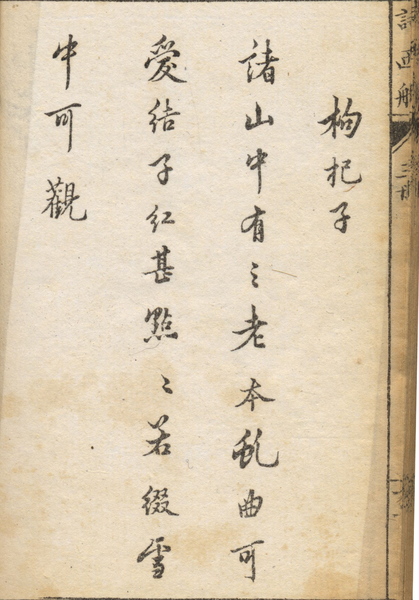 詩画舫
枸杞子
諸山中有之老本虬曲可
愛結子紅甚點〻若綴雪
中可觀